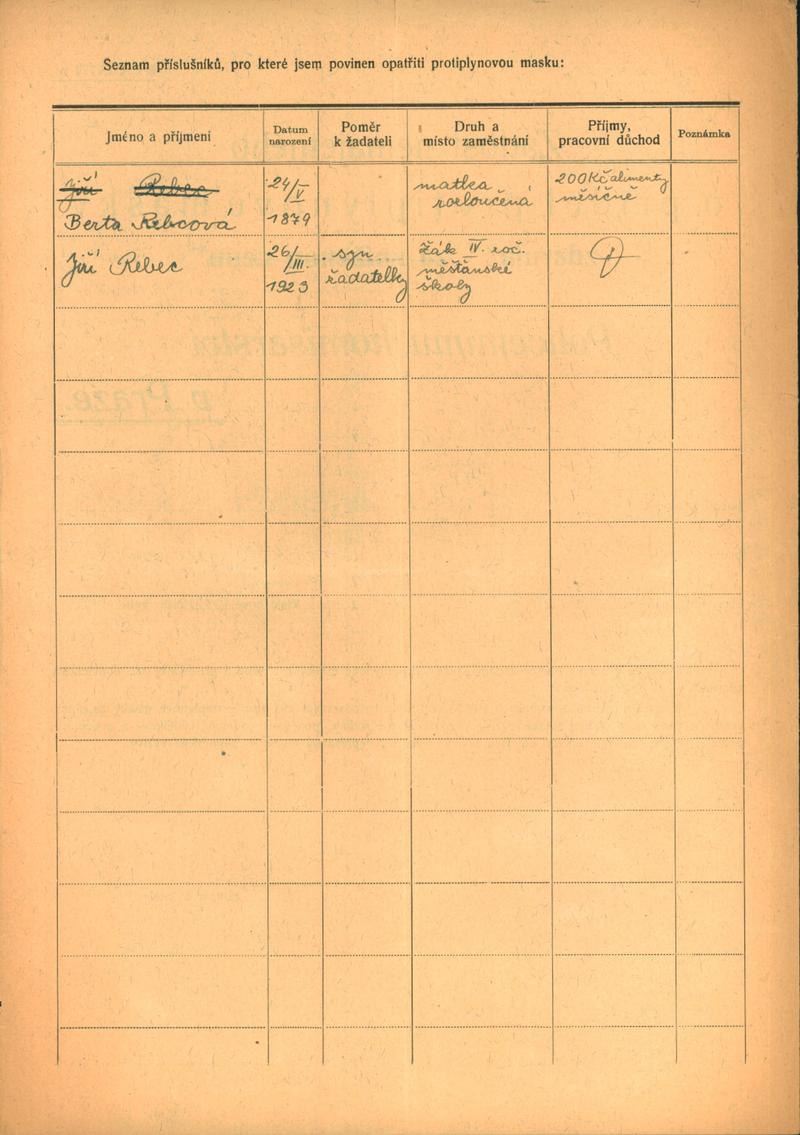 Seznam příslušníků, pro které jsem povinen opatřiti protiplynovou masku:
Jméno a příjmení
Datum
narození
Poměr
k žadateli
Druh a
místo zaměstnání
Příjmy,
pracovní důchod
Poznámka
Jiří Rebec
Berta Rebcová
24/V
1879
matka
rozloučená
200 Kč alimenty
měsíčně
Jiří Rebec
26/III.
1923
syn
žadatelky
žák IV. roč.
měšťanské
školy
Policejnímu komisařství
v Praze.